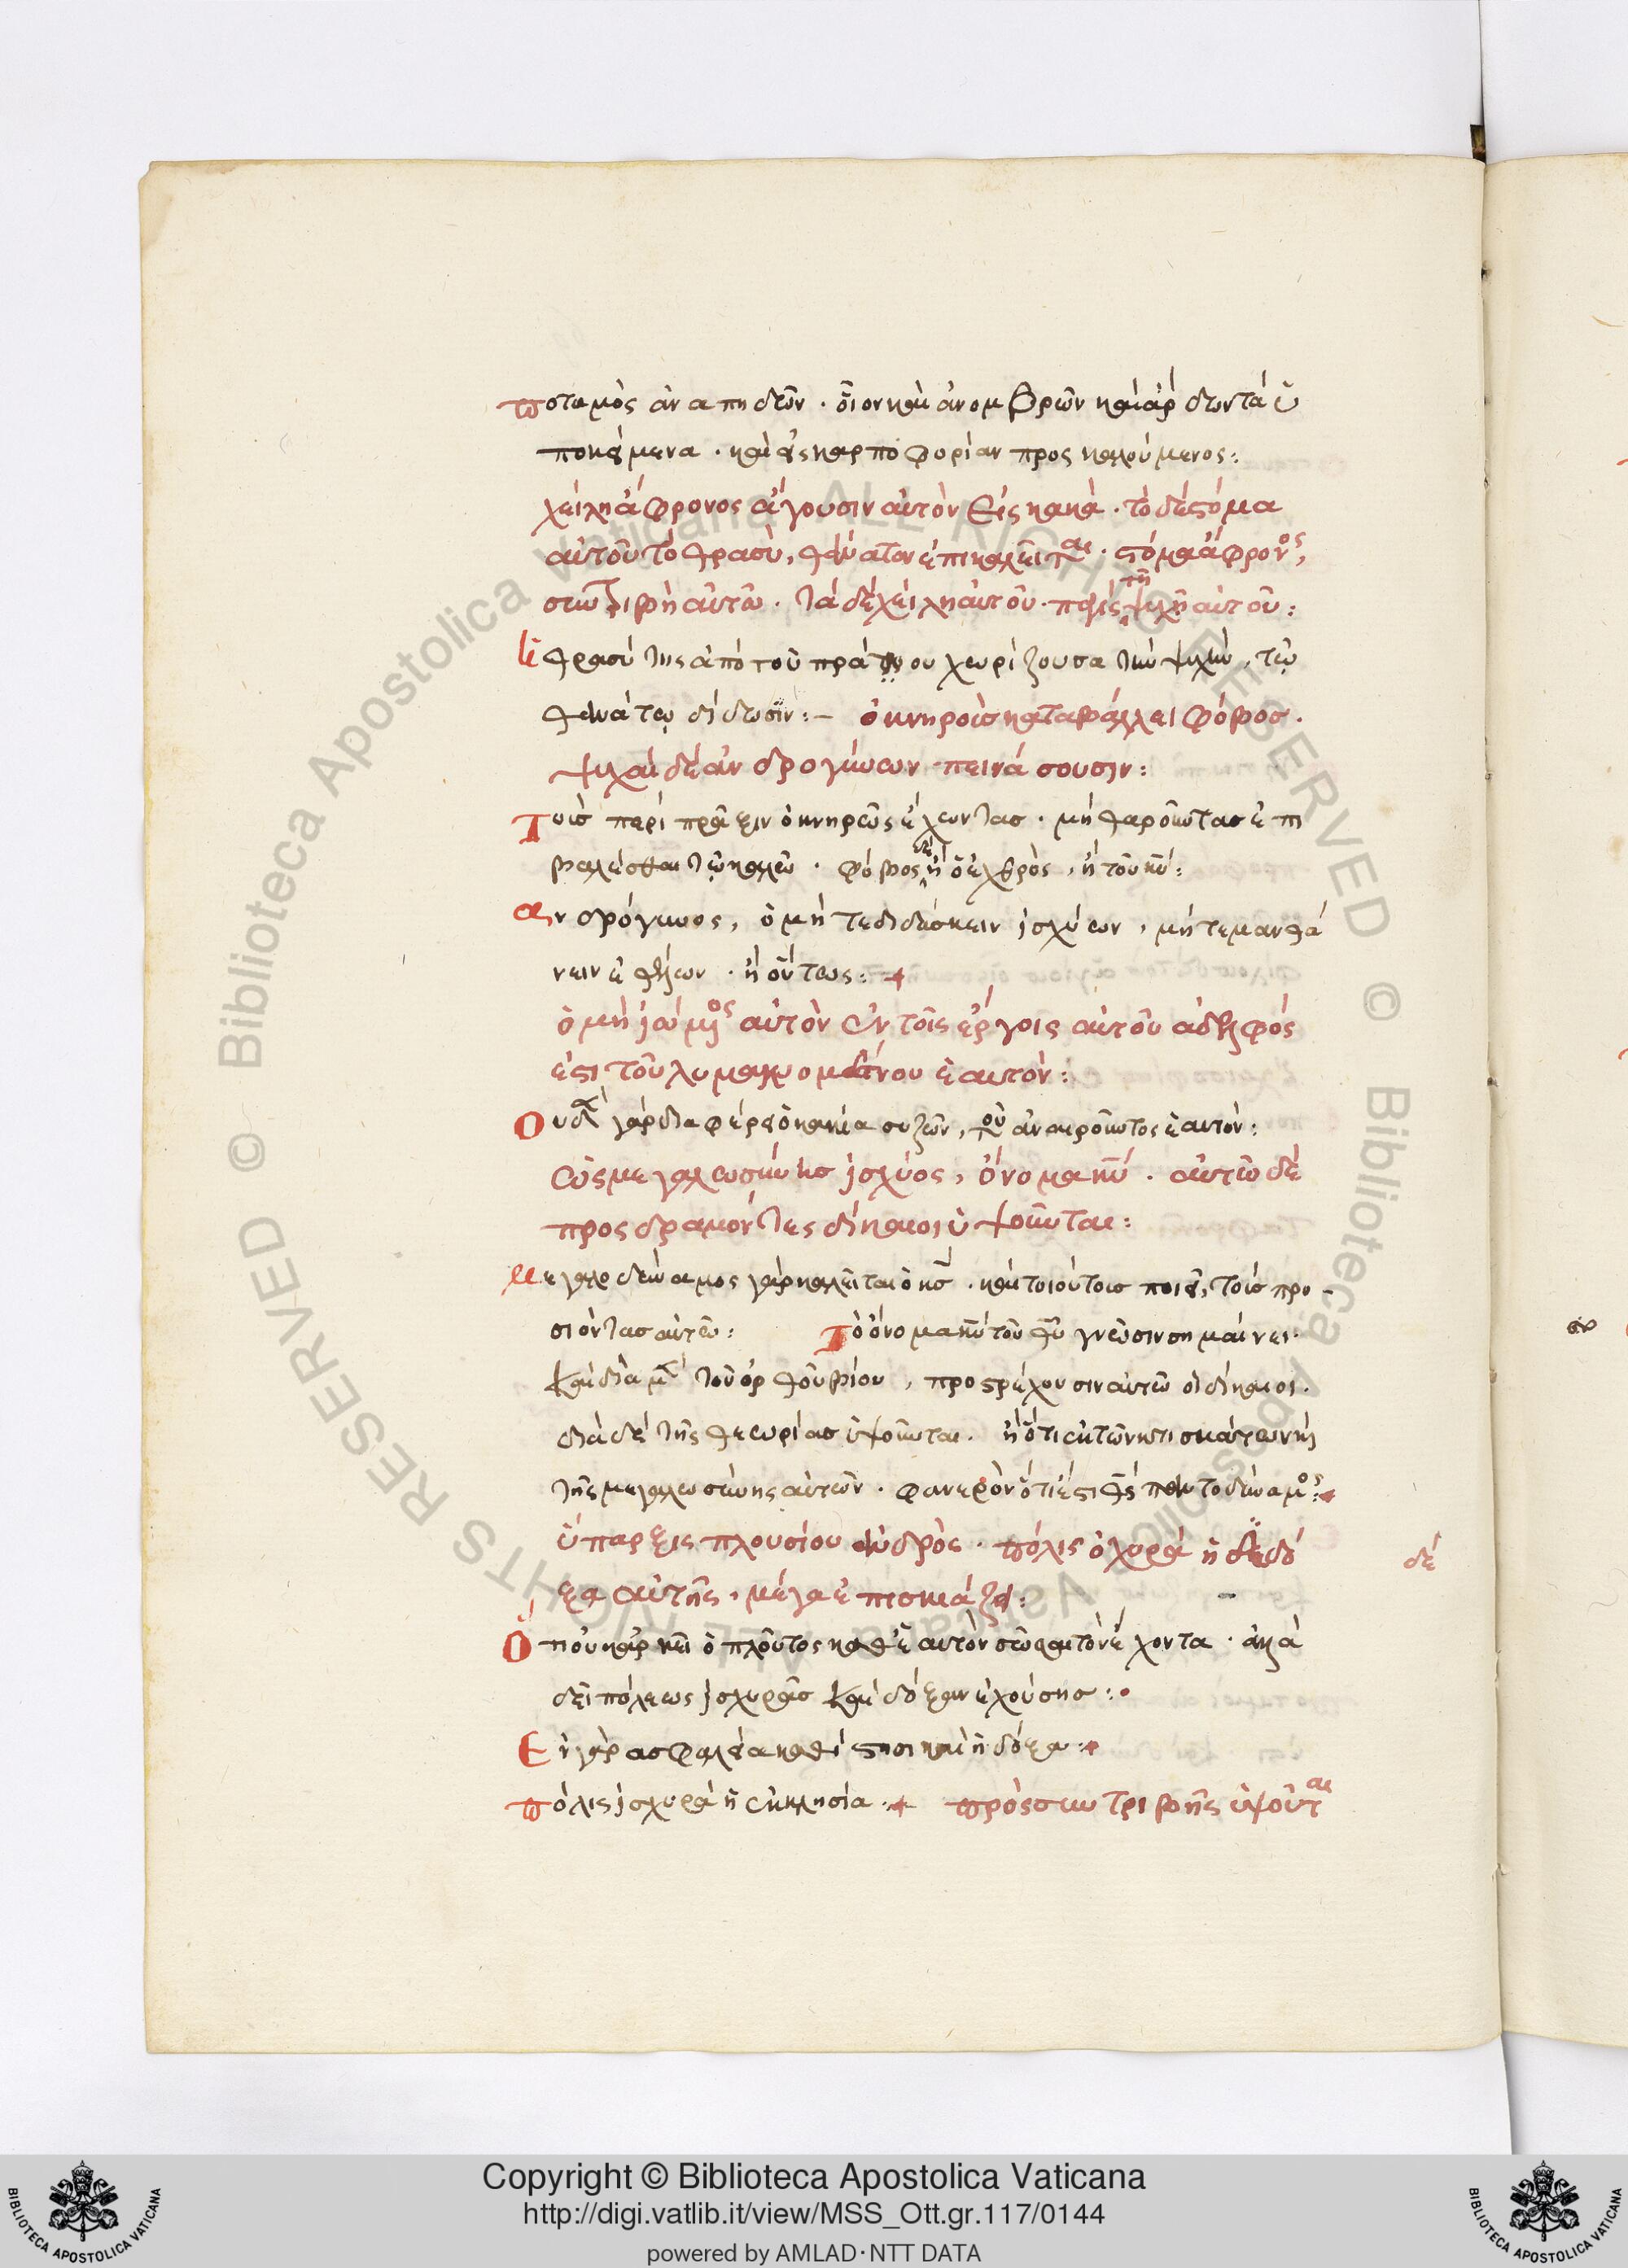 ποταμὸς ἀναπηδῶν · οἷον καὶ ἀνομβρῶν καὶ ἄρδων τὰ ὑ
ποκείμενα · καὶ εἰς καρποφορίαν προσκαλούμενος :
χείλη ἄφρονος ἄγουσιν αὐτὸν εἰς κακά · τὸ δὲ στόμα
αὐτοῦ τὸ θρασὺ, θάνατον ἐπικαλεῖται · στόμα ἄφρονος,
συντριβὴ αὐτῶ · τὰ δὲ χείλη αὐτοῦ · παγὶς τῆ ψυχῆ αὐτοῦ :
θρασύτης ἀπὸ τοῦ πράου χωρίζουσα τὴν ψυχὴν, τῷ
θανάτῳ δίδωσιν :– ὀκνηροὺς καταβάλλει φόβος ·
ψυχαὶ δὲ ἀνδρογύνων πεινάσουσιν :
Τοὺς περὶ πρᾶξιν ὀκνηρῶς ἔχωντας · μὴ θαροῦντας ἐπι
βαλέσθαι τῷ καλῶ · φόβος ἐστὶ ἢ ὁ ἐχθρὸς, ἢ τοῦ κυ :
ανδρόγυνος, ὁ μήτε διδάσκειν ἰσχύων, μήτε μανθά
νειν ἐθέλων · ἢ οὕτως :
ὁ μὴ ἰώμενος αὐτὸν ἐν τοῖς ἔργοις αὐτοῦ ἀδελφός
ἐστι τοῦ λυμαινομένου ἑαυτόν :
Οὐδὲν γὰρ διαφέρει ὁ κακία συζῶν, τοῦ ἀναιροῦντος ἑαυτόν :
ὡς μεγαλωσύνης ἰσχύος, ὄνομα κυ · αὐτῶ δὲ
προσδραμόντες δίκαιοι ὑψοῦνται :
Μεγαλοδύναμος γὰρ καλεῖται ὁ κς · καὶ τοιούτους ποιεῖ, τοὺς προ-
σιόντας αὐτῶ : Τὸ ὄνομα κυ τοῦ θυ γνῶσιν σημαίνει ·
καὶ διὰ μὲν τοῦ ὀρθοῦ βίου, προστρέχουσιν αὐτῶ οἱ δίκαιοι ·
διὰ δὲ τῆς θεωρίας ὑψοῦνται · ἢ ὅτι ἐκ τῶν κτισμάτων καὶ
τῆς μεγαλωσύνης αὐτῶν · φανερὸν ὅτι ἐστὶ θς παντοδύναμος :
ὕπαρξις πλουσίου ἀνδρὸς · πόλις ὀχυρά ἡ δὲ δό
ξα αὐτῆς, μέγα ἐπισκιάζει :
δέ
Ὅτι οὐκ ἀρκεῖ ὁ πλοῦτος καθ' ἑαυτὸν σῶσαι τὸν ἔχοντα · ἀλλὰ
δεῖ πόλεως ἰσχυρᾶς καὶ δόξαν ἐχούσης :
Ἐν γὰρ ασφαλεία καθίστησι καὶ ἡ δόξα :
πόλις ἰσχυρά ἡ ἐκκλησία : πρὸ συντριβῆς ὑψοῦται
Copyright © Biblioteca Apostolica Vaticana
http://digi.vatlib.it/view/MSS_Ott.gr.117/0144
powered by AMLAD·NTT DATA